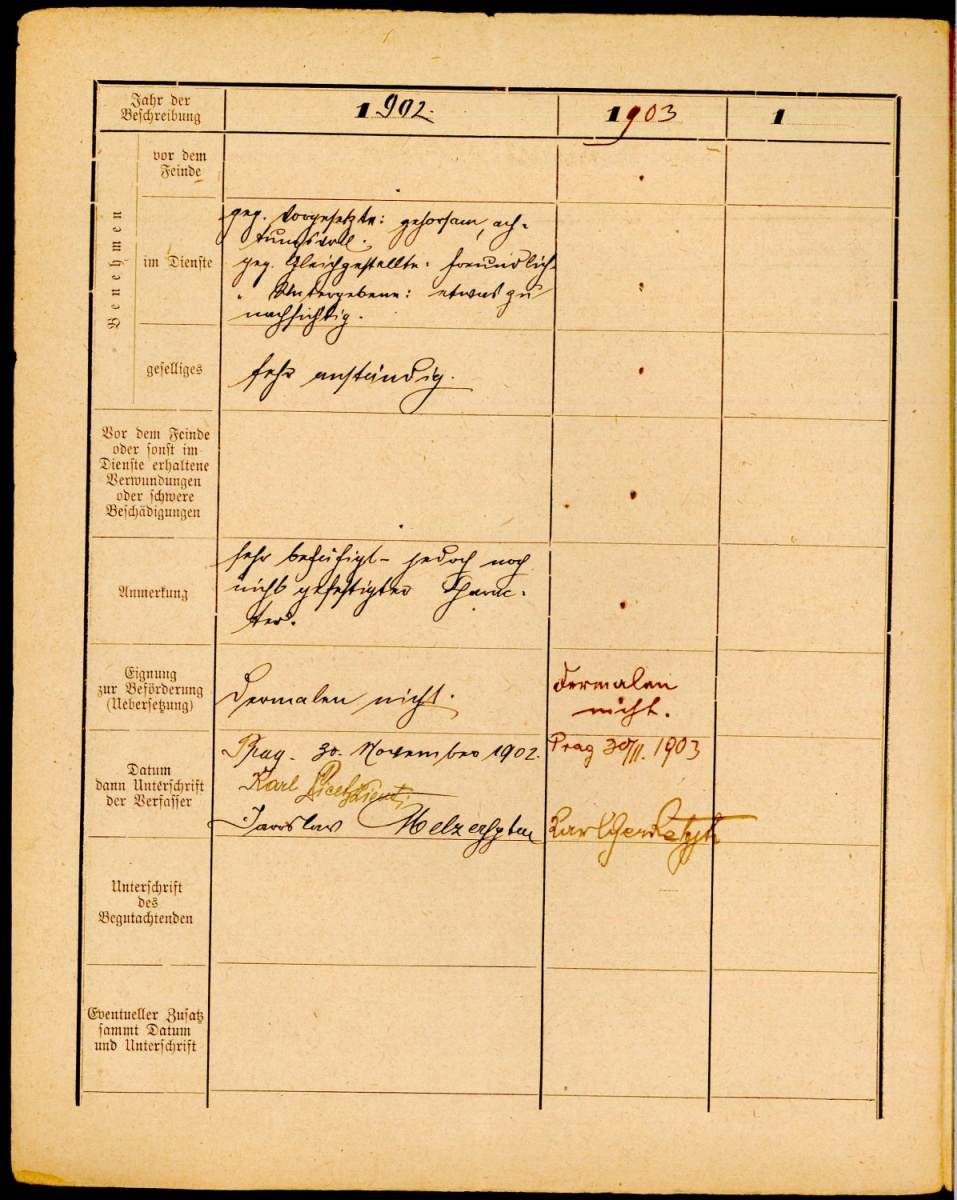 Jahr der
Beschreibung
1902.
1903
1
Benehmen
vor dem
Feinde
im Dienste
geg. Vorgesetzte: gehorsam, ach-
tungsvoll.
geg. Gleichgestellte: freundlich
" Untergebene: etwas zu
nachsichtig.
geselliges
sehr anständig.
Vor dem Feinde
oder sonst im
Dienste erhaltene
Verwundungen
oder schwere
Beschädigungen
Anmerkung
sehr befähigt - jedoch noch
nicht gefestigter Charac-
ter.
Eignung
zur Beförderung
(Uebersetzung)
Dermalen nicht.
Dermalen
nicht.
Datum
dann Unterschrift
der Verfasser
Prag. 30. November 1902.
Karl
Jaroslav
Prag 30/11. 1903
Karl
Unterschrift
des
Begutachtenden
Eventueller Zusatz
sammt Datum
und Unterschrift